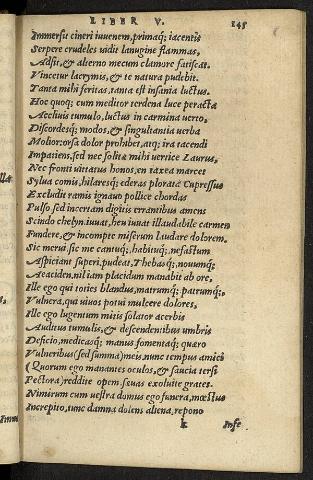 LIBER V. 145
Immersit cineri iuuenem, primaq; iacentis
Serpere crudeles uidit lanugine flammas,
Adsit, & alterno mecum clamore fatiscat.
Vincetur lacrymis, & te natura pudebit.
Tanta mihi feritas, tanta est insania luctus.
Hoc quoq; cum meditor terdena luce peracta
Accliuis tumulo, luctus in carmina uerto,
Discordesq; modos, & singultantia uerba
Molior: orsa dolor prohibet, atq; ira tacendi
Impatiens, sed nec solitæ mihi uertice Laurus,
Nec fronti uittatus honos, en taxea marcet
Sylua comis, hilaresq; ederas plorata Cupressus
Excludit ramis ignauo pollice chordas
Pulso, sed incertam digitis errantibus amens
Scindo chelyn. iuuat, heu iuuat illaudabile carmen
Fundere, & incompte miserum laudare dolorem.
Sic merui, sic me cantuq;, habituq; nefastum
Aspiciant superi, pudeat, Thebasq;, nouumq;
Aeaciden, nil iam placidum manabit ab ore,
Ille ego qui toties blandus, matrumq; patrumq;,
Vulnera, qui uiuos potui mulcere dolores,
Ille ego lugentum mitis solator acerbis
Auditus tumulis, & descendentibus umbris
Deficio, medicasq; manus fomentaq; quæro
Vulneribus (sed summa) meis, nunc tempus amici
(Quorum ego manantes oculos, & saucia tersi
Pectora) reddite opem, sæuas exoluite grates.
Nimirum cum uestra domus ego funera, mœstus
Increpito, tunc damna dolens aliena, repono
k Infe